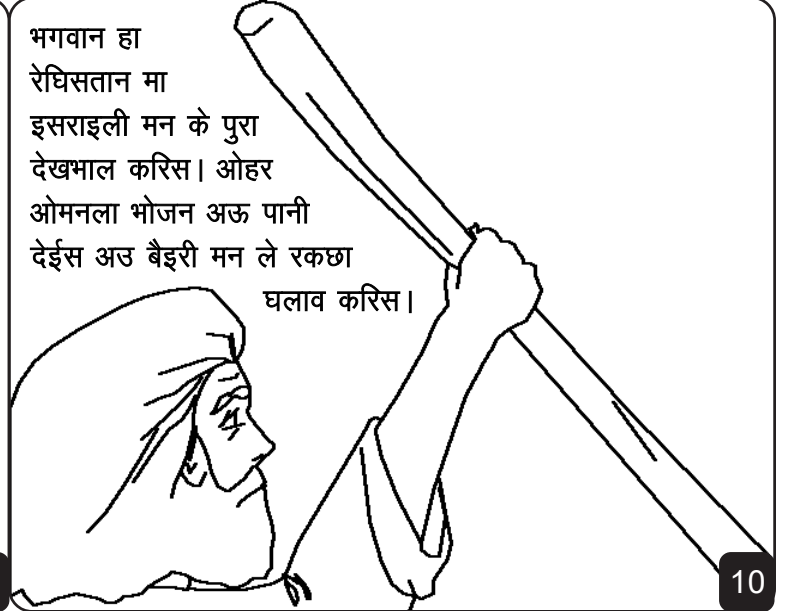 भगवान हा
रेघिसतान मा
इसराइली मन के पुरा
देखभाल करिस। ओहर
ओमनला भोजन अऊ पानी
देईस अउ बैइरी मन ले रकछा
घलाव करिस।
10